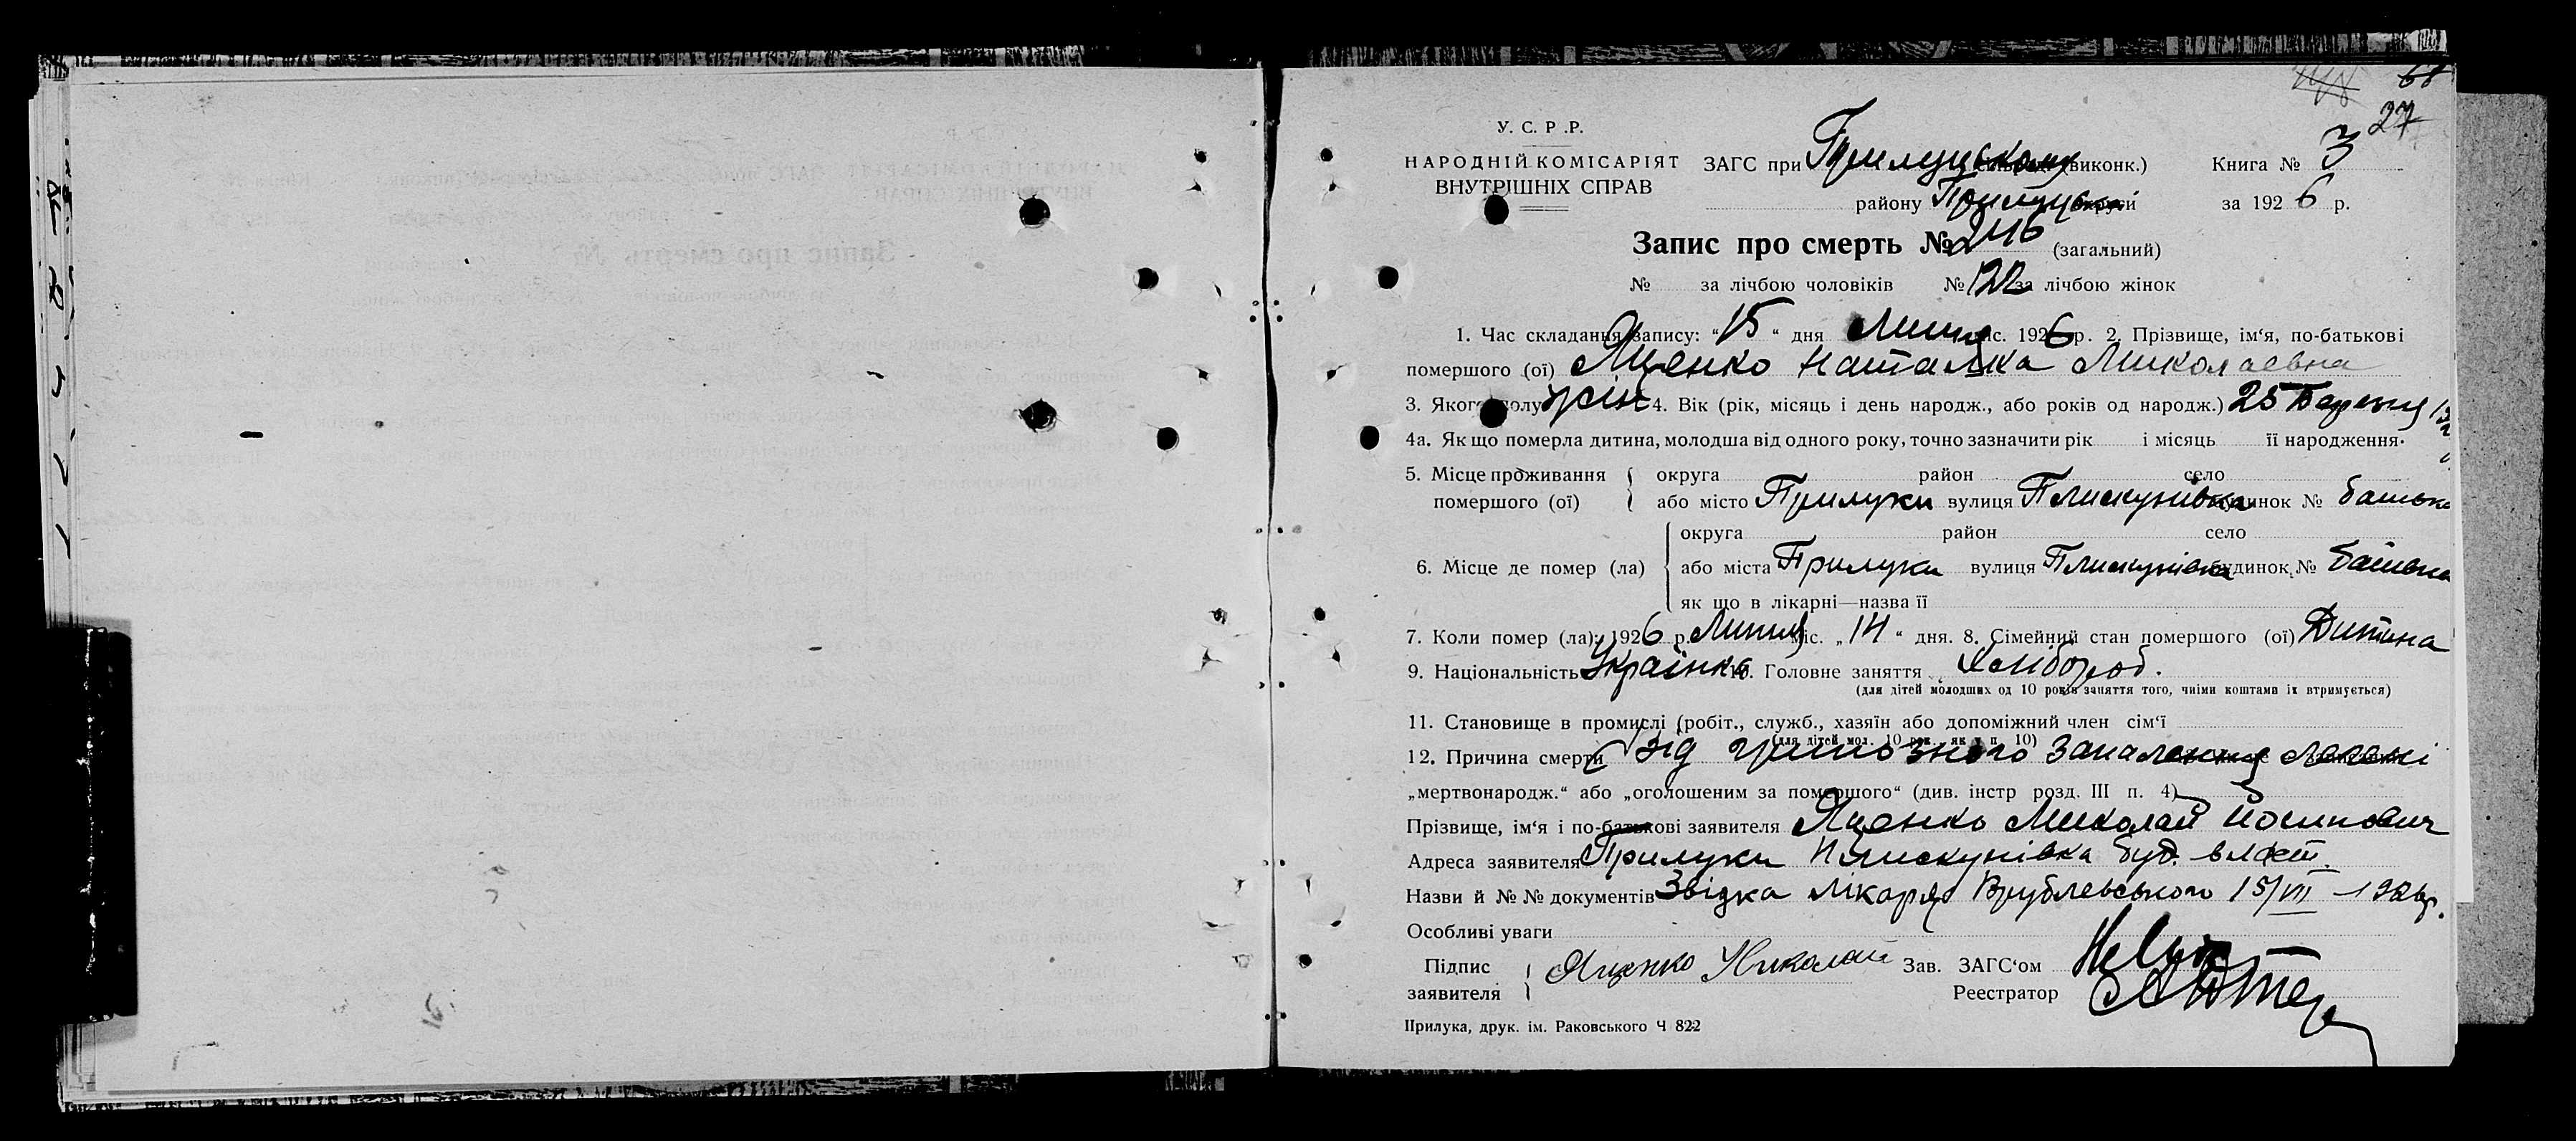 68
27
У. С. Р .Р.
НАРОДНІЙ КОМІСАРІЯТ ЗАГС при Прилуцькому (виконк.) Книга № 3
ВНУТРІШНІХ СПРАВ
району Прилуцька округи за 1926 р.
Запис про смерть № 246 (загальний)
№ за лічбою чоловіків № 122 за лічбою жінок
1. Час складання запису: “15“ дня Липня міс. 1926 р. 2. Прізвище, ім‘я, по-батькові
помершого (ої) Яценко Наталка Миколаевна
3. Якого полу жін 4. Вік (рік, місяць і день народж., або років од народж.) 25 Березня
4а. Як що померла дитина, молодша від одного року, точно зазначити рік і місяць її народження.
5. Місце проживання округа район село
помершого (ої) або місто Прилуки вулиця Плискунівка будинок № батька
округа район село
6. Місце де помер (ла) або міста Прилуки вулиця Плискунівка будинок № батька
як що в лікарні—назва її
7. Коли помер (ла): 1926 р. Липня міс. „14“ дня. 8. Сімейний стан помершого (ої) Дитина
9. Національність Українка 10. Головне заняття Хлібороб.
(для дітей молодших од 10 років заняття того, чиїми коштами їх втримується)
11. Становище в промислі (робіт., служб., хазяїн або допоміжний член сім‘ї
(для дітей мол. 10 рок., як у п. 10)
12. Причина смерти Від грипозного запалення легені
„мертвонародж.“ або „оголошеним за помершого“ (див. інстр розд. III п. 4)
Прізвище, ім‘я і по-батькові заявителя Яценко Миколай Йосипович
Адреса заявителя Прилуки Плискунівка буд. власт.
Назви й №№ документів Звідка лікаря Врублевського 15/VII – 1926р.
Особливі уваги
Підпис Яценко Николай Зав. ЗАГС‘ом
заявителя Реестратор
Прилука, друк. ім. Раковського Ч 822